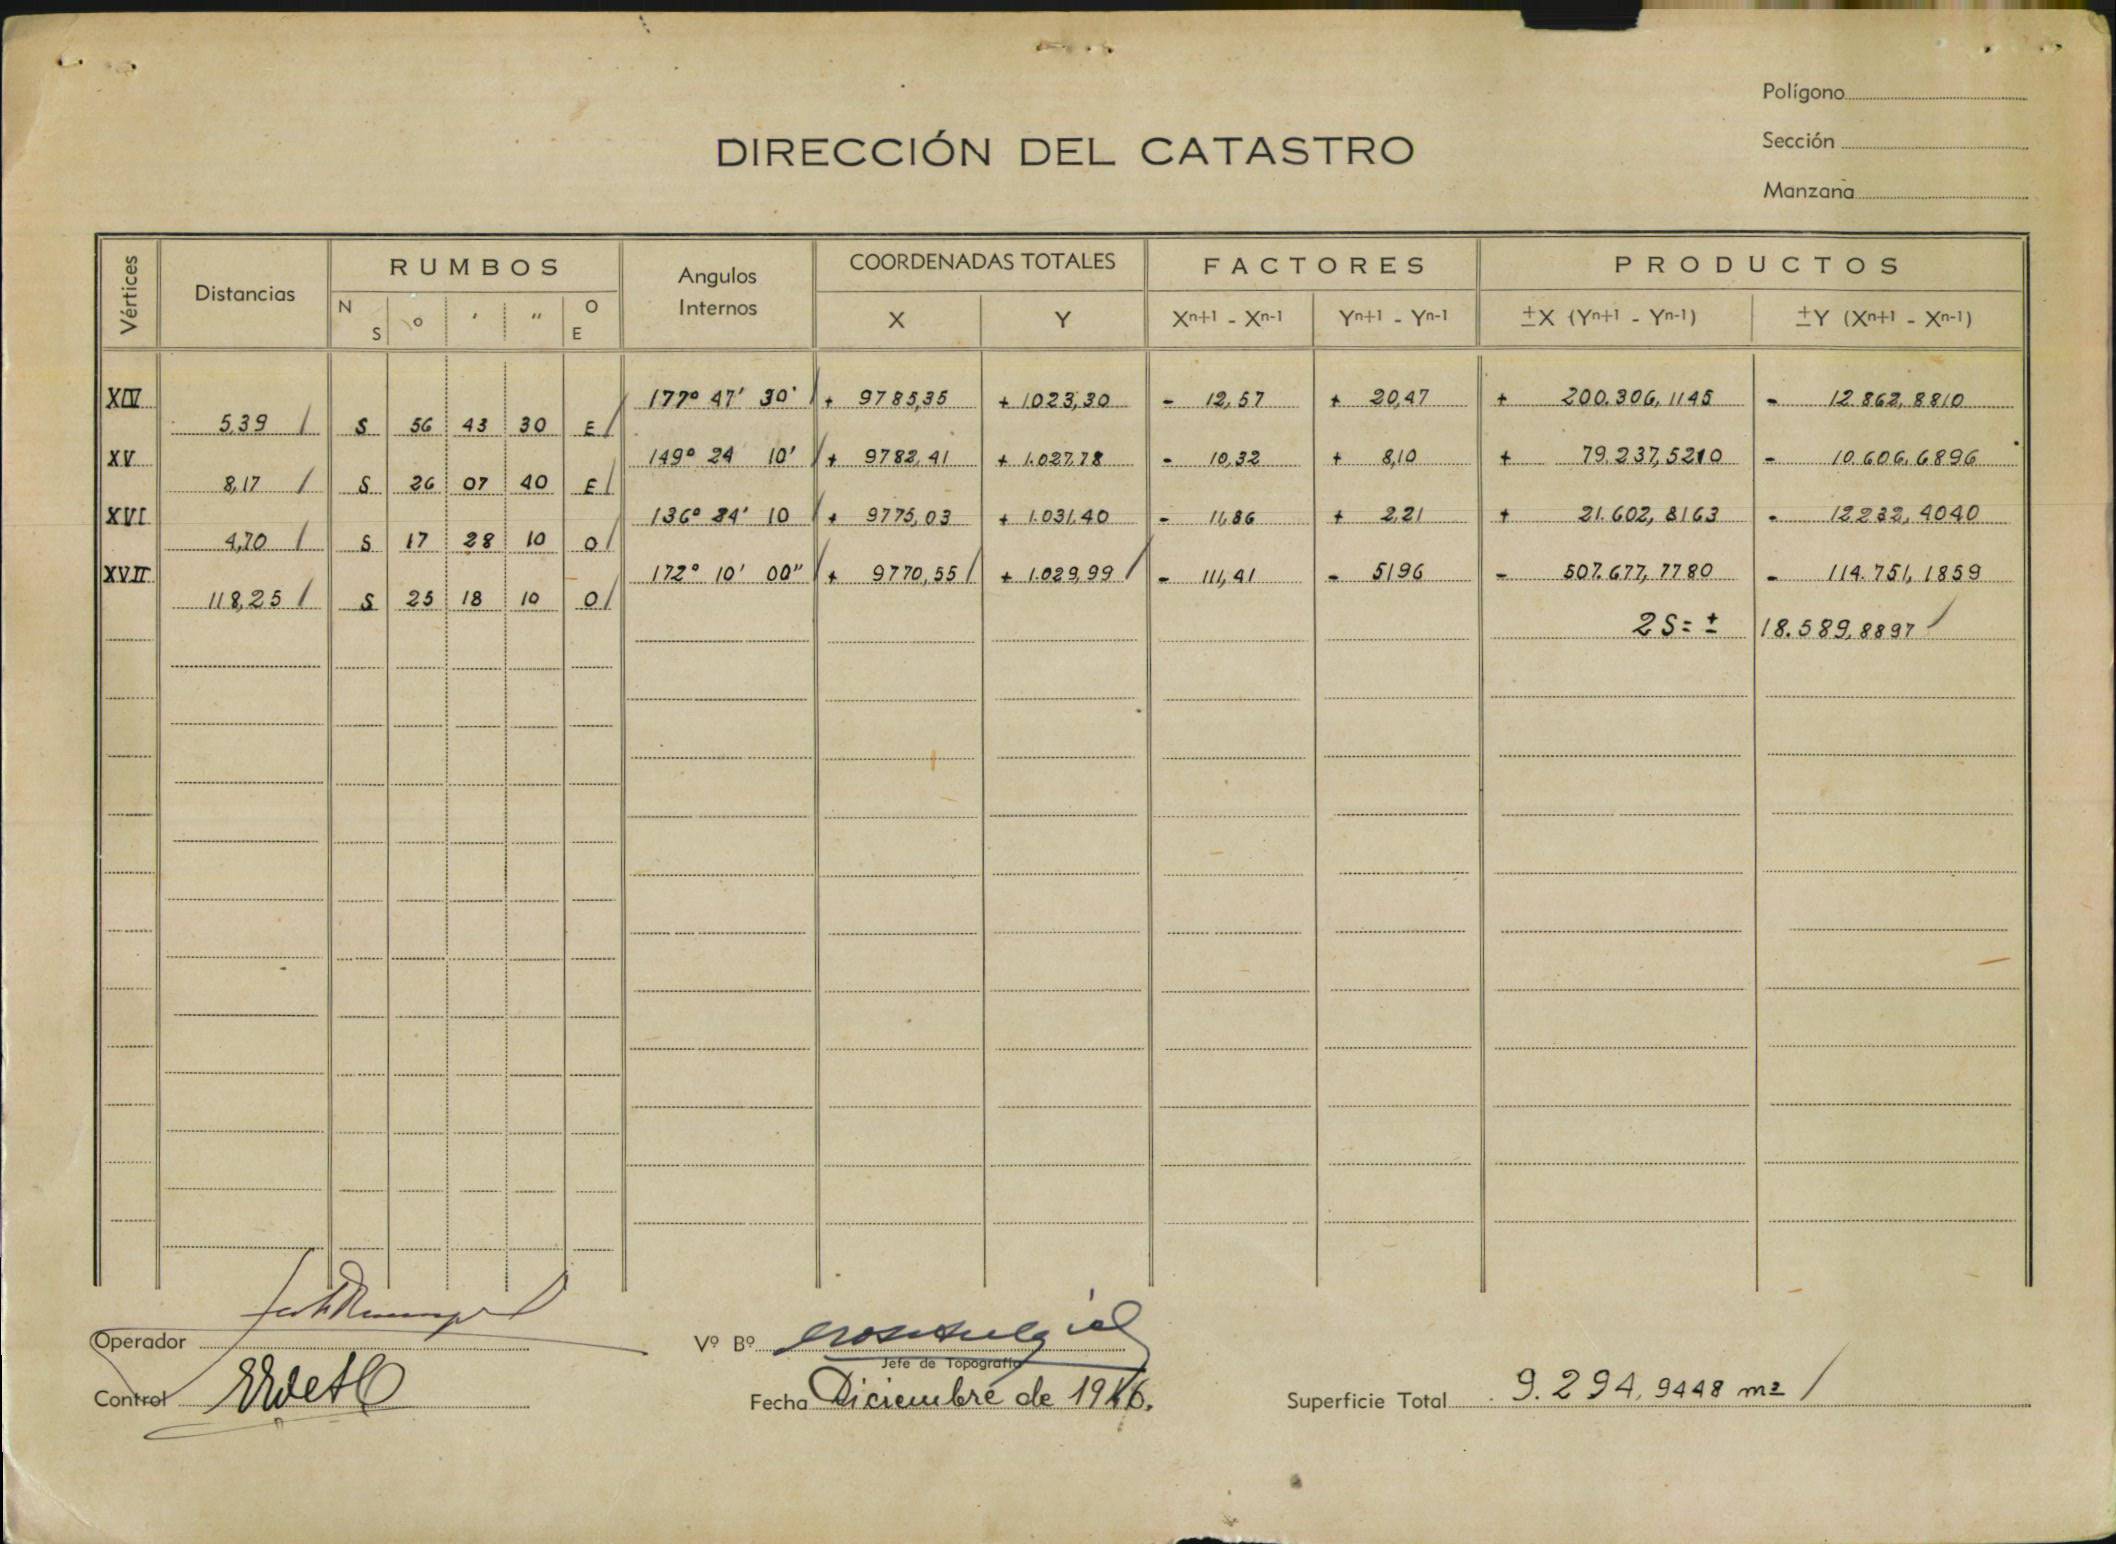 Polígono
DIRECCIÓN DEL CATASTRO
Sección
Manzana
Vértices Distancias RUMBOS Angulos Internos COORDENADAS TOTALES FACTORES PRODUCTOS
N S o ' " O E X Y Xn+1 - Xn-1 Yn+1 - Yn-1 ±X (Yn+1 - Yn-1) ±Y (Xn+1 - Xn-1)
XIV 177° 47' 30' + 9785,35 + 1023,30 - 12,57 + 20,47 + 200.306,1145 - 12.862,8810
5,39 S 56 43 30 E
XV 149° 24 10' + 9782,41 + 1.027,78 - 10,32 + 8,10 + 79.237,5210 - 10.606,6896
8,17 S 26 07 40 E
XVI 136° 24' 10 + 9775,03 + 1.031,40 - 11,86 + 2,21 + 21.602,8163 - 12232,4040
4,70 S 17 28 10 O
XVII 172° 10' 00" + 9770,55 + 1.029,99 - 111,41 - 5196 - 507.677,7780 - 114.751,1859
118,25 S 25 18 10 O
2S = ± 18.589,8897
Operador
Vº Bº
Jefe de Topografía
Control
Fecha Diciembre de 1946.
Superficie Total 9.294,9448 m2